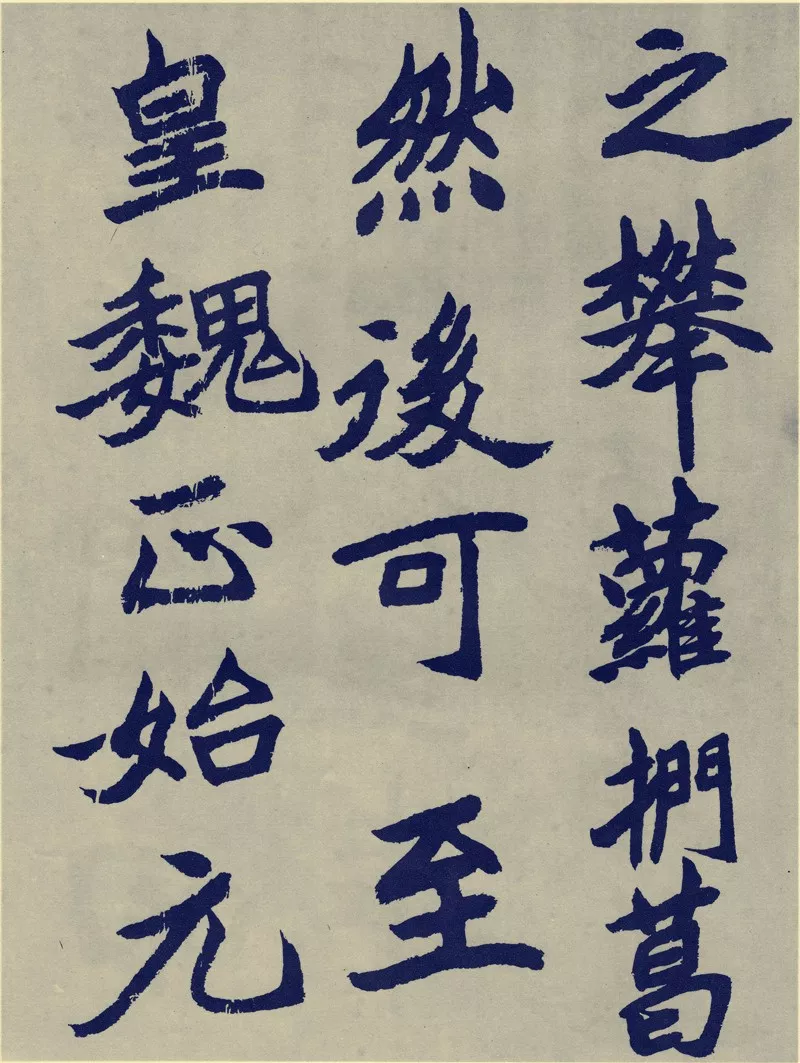 之攀蘿捫葛
然後可至
皇魏正始元